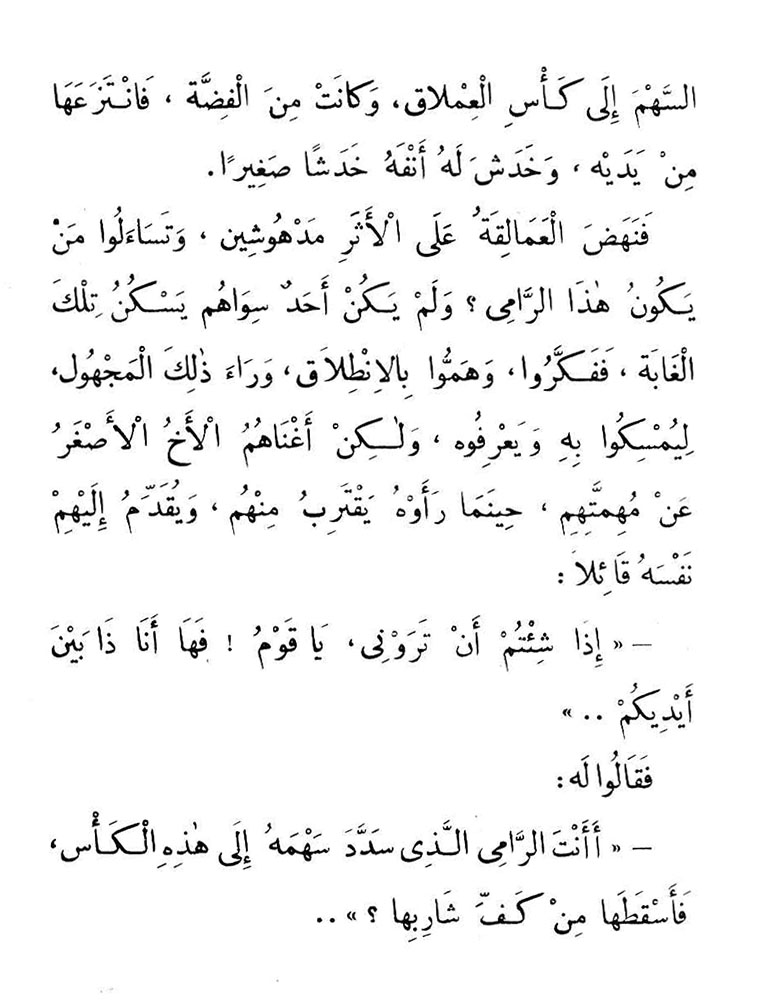 السَّهْمَ إِلَى كَأْسِ الْعِمْلاق، وَكانَتْ مِنَ الْفِضَّة ، فَانْتَزَعَهَا
مِنْ يَدَيْه ، وَخَدَشَ لَهُ أَنْفَهُ خَدْشًا صَغِيرًا.
فَنَهَضَ الْعَمَالِقَةُ عَلَى الْأَثَرِ مَدْهُوشِين ، وَتَسَاءَلُوا مَنْ
يَكُونُ هٰذَا الرَّامِى ؟ وَلَمْ يَكُنْ أَحَدٌ سِوَاهُم يَسْكُنُ تِلْكَ
الْغَابَة ، فَفَكَّرُوا، وَهَمُّوا بِالِانْطِلَاق، وَرَاءَ ذٰلِكَ الْمَجْهُول،
لِيُمْسِكُوا بِهِ وَيَعْرِفُوه ، وَلٰكِنْ أَغْنَاهُمُ الْأَخُ الْأَصْغَرُ
عَنْ مُهِمَّتِهِم ، حِينَمَا رَأَوْهُ يَقْتَرِبُ مِنْهُم ، وَيُقَدِّمُ إِلَيْهِمْ
نَفْسَهُ قَائِلاً :
— « إِذَا شِئْتُمْ أَنْ تَرَوْنِى، يَا قَوْمُ ! فَهَا أَنَا ذَا بَيْنَ
أَيْدِيكُمْ .. »
فَقَالُوا لَه :
— « أَأَنْتَ الرَّامِى الَّذِى سَدَّدَ سَهْمَهُ إِلَى هٰذِهِ الْكَأْس،
فَأَسْقَطَهَا مِنْ كَفِّ شَارِبِها ؟ » ..